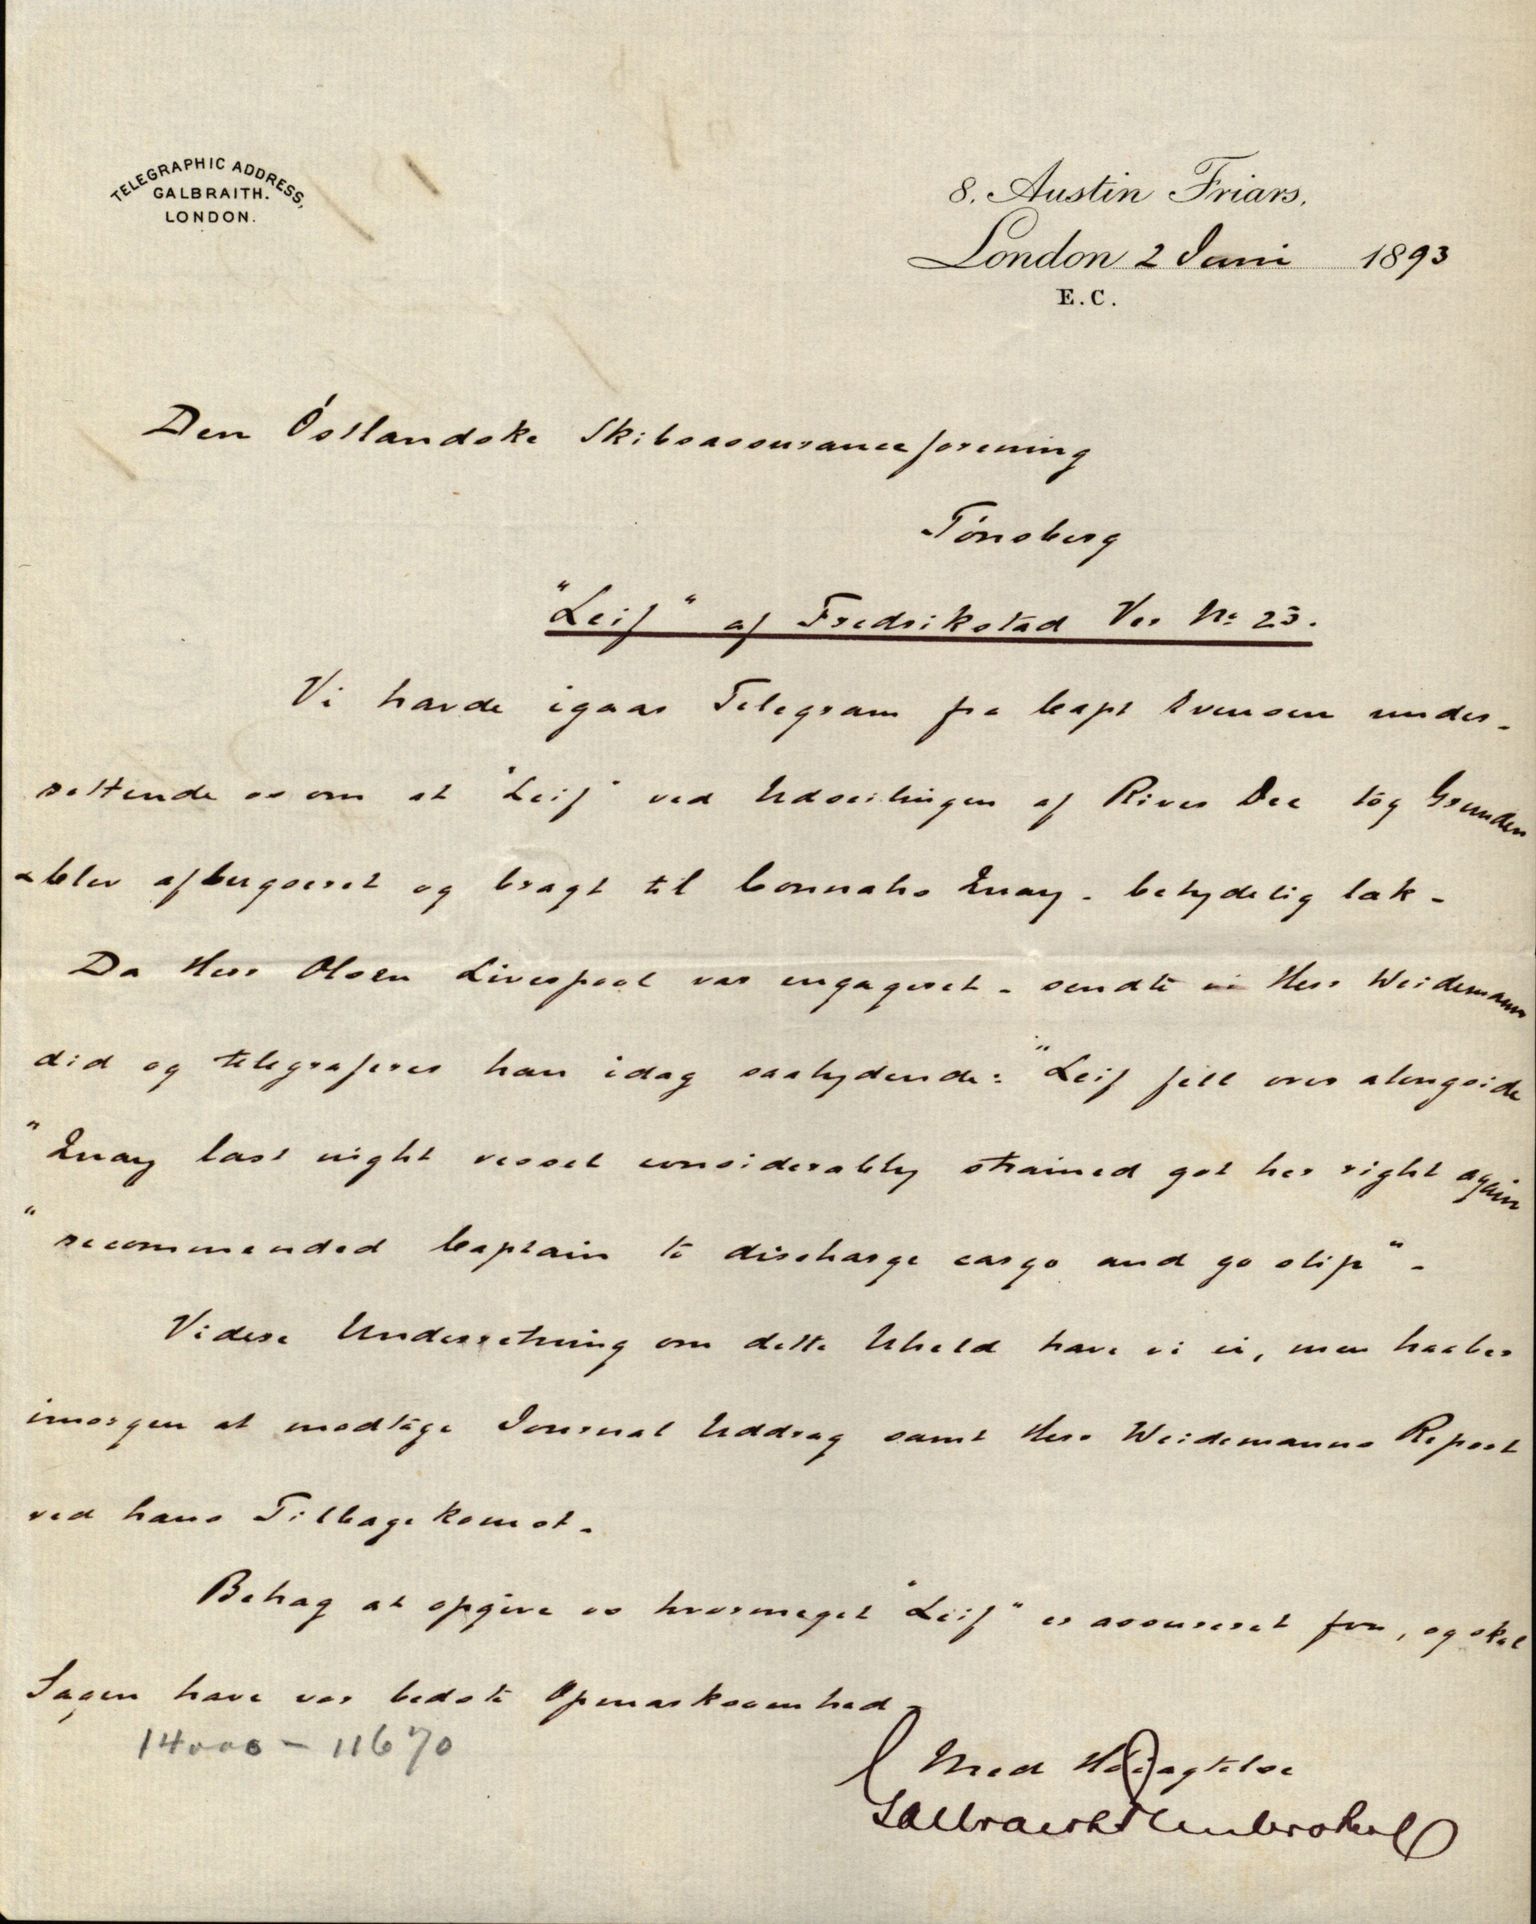 TELEGRAPHIC ADDRESS,
GALBRAITH.
LONDON.
8, Austin Friars,
London 2 Juni 1893
E.C.
Den Östlandske Skibsassuranceforening
Tönsberg
"Leif" af Fredrikstad Ver No 23.
Vi havde igaar Telegram fra Capt Svensen under-
rettende os om at "Leif" ved Udseilingen af River Dee tog Grunden
- blev afbugseret og bragt til Connahs Quay - betydelig læk -
Da Herr Olsen Liverpool var engageret - sendte vi Herr Weidemann
did og telegraferer han idag saalydende: "Leif fell over alongside
"Quay last night vessel considerably strained got her right again
"recommended Captain to discharge cargo and go slip" -
Videre Underretning om dette Uheld have vi ei, men haaber
imorgen at modtage Journal Uddrag samt Herr Weidemanns Report
ved hans Tilbagekomst -
Behag at opgive os hvormeget "Leif" er assureret for, og skal
Sagen have vor bedste Opmærksomhed -
14000 - 11670
Med Höiagtelse
Galbraith Pembroke